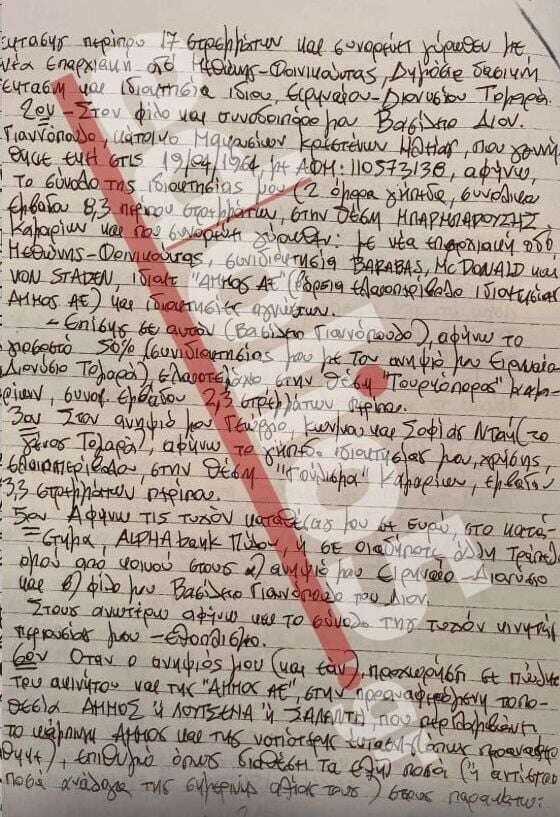 έκτασης περίπου 17 στρεμμάτων και συνορεύει γύρωθεν με
νέα επαρχιακή οδό Μεθώνης-Φοινικούντας, Δημόσια δασική
έκταση και ιδιοκτησία ιδίου, Ειρηναίου-Διονυσίου Τσμαρά.
2ον - Στον φίλο και συνοδοιπόρο μου Βασίλειο Διον.
Γιαννόπουλο, κάτοικο Μακρισίων Κρεστένων Ηλείας, που γεννή-
θηκε εκεί στις 19/04/1964, με ΑΦΜ: 110573138, αφήνω
το σύνολο της ιδιοκτησίας μου (2 όμορα γήπεδα, συνολικού
εμβαδού 8,3 περίπου στρεμμάτων, στην θέση ΜΠΑΡΜΠΑΡΟΥΣΗΣ,
Καμαρίων και που συνορεύει γύρωθεν: με νέα επαρχιακή οδό,
Μεθώνης-Φοινικούντας, συνιδιοκτησία BARABAS, McDONALD και
VON STADEN, ιδιοκτ. "ΑΜΜΟΣ ΑΕ" (βόρεια ελαιοπερίβολο ιδιοκτησίας
ΑΜΜΟΣ ΑΕ) και ιδιοκτησίες αγνώστων.
- Επίσης σε αυτόν (Βασίλειο Γιαννόπουλο), αφήνω το
ποσοστό 50% (συνιδιοκτησίας μου με τον ανηψιό μου Ειρηναίο
Διονύσιο), ελαιοτεμάχιο στην θέση "Τουρκόπορος" Καμα-
ρίων, συνολ. εμβαδού 2,3 στρεμμάτων περίπου.
3ον Στον ανηψιό μου Γεώργιο, Κων/νου και Σοφίας (το
γένος), αφήνω το γήπεδο ιδιοκτησίας μου, χρήσης,
ελαιοπερίβολου, στην θέση Καμαρίων, εμβαδού
3,3 στρεμμάτων περίπου.
5ον Αφήνω τις τυχόν καταθέσεις μου σε Ευρώ, στο κατά-
στημα, ALPHA bank Πύλου, ή σε οιαδήποτε άλλη Τράπεζα
από κοινού στους α) ανηψιό μου Ειρηναίο-Διονύσιο
και β) φίλο μου Βασίλειο Γιαννόπουλο του Διον.
Στους ανωτέρω αφήνω και το σύνολο της τυχόν κινητής
περιουσίας μου
6ον Οταν ο ανηψιός μου (και εάν), προχωρήση σε πώληση
του ακινήτου και της "ΑΜΜΟΣ ΑΕ", στην προαναφερόμενη τοπο-
θεσία ΑΜΜΟΣ ή ΛΟΥΤΣΕΝΑ ή, που περιλαμβάνει
το κάμπινγκ ΑΜΜΟΣ και της νοτιότερης έκτασης (όπως προαναφέρ-
θηκε), επιθυμώ όπως διαθέσει τα εξής ποσά (ή αντίστοιχα
ποσά ανάλογα της σημερινής αξίας τους) στους παρακάτω: